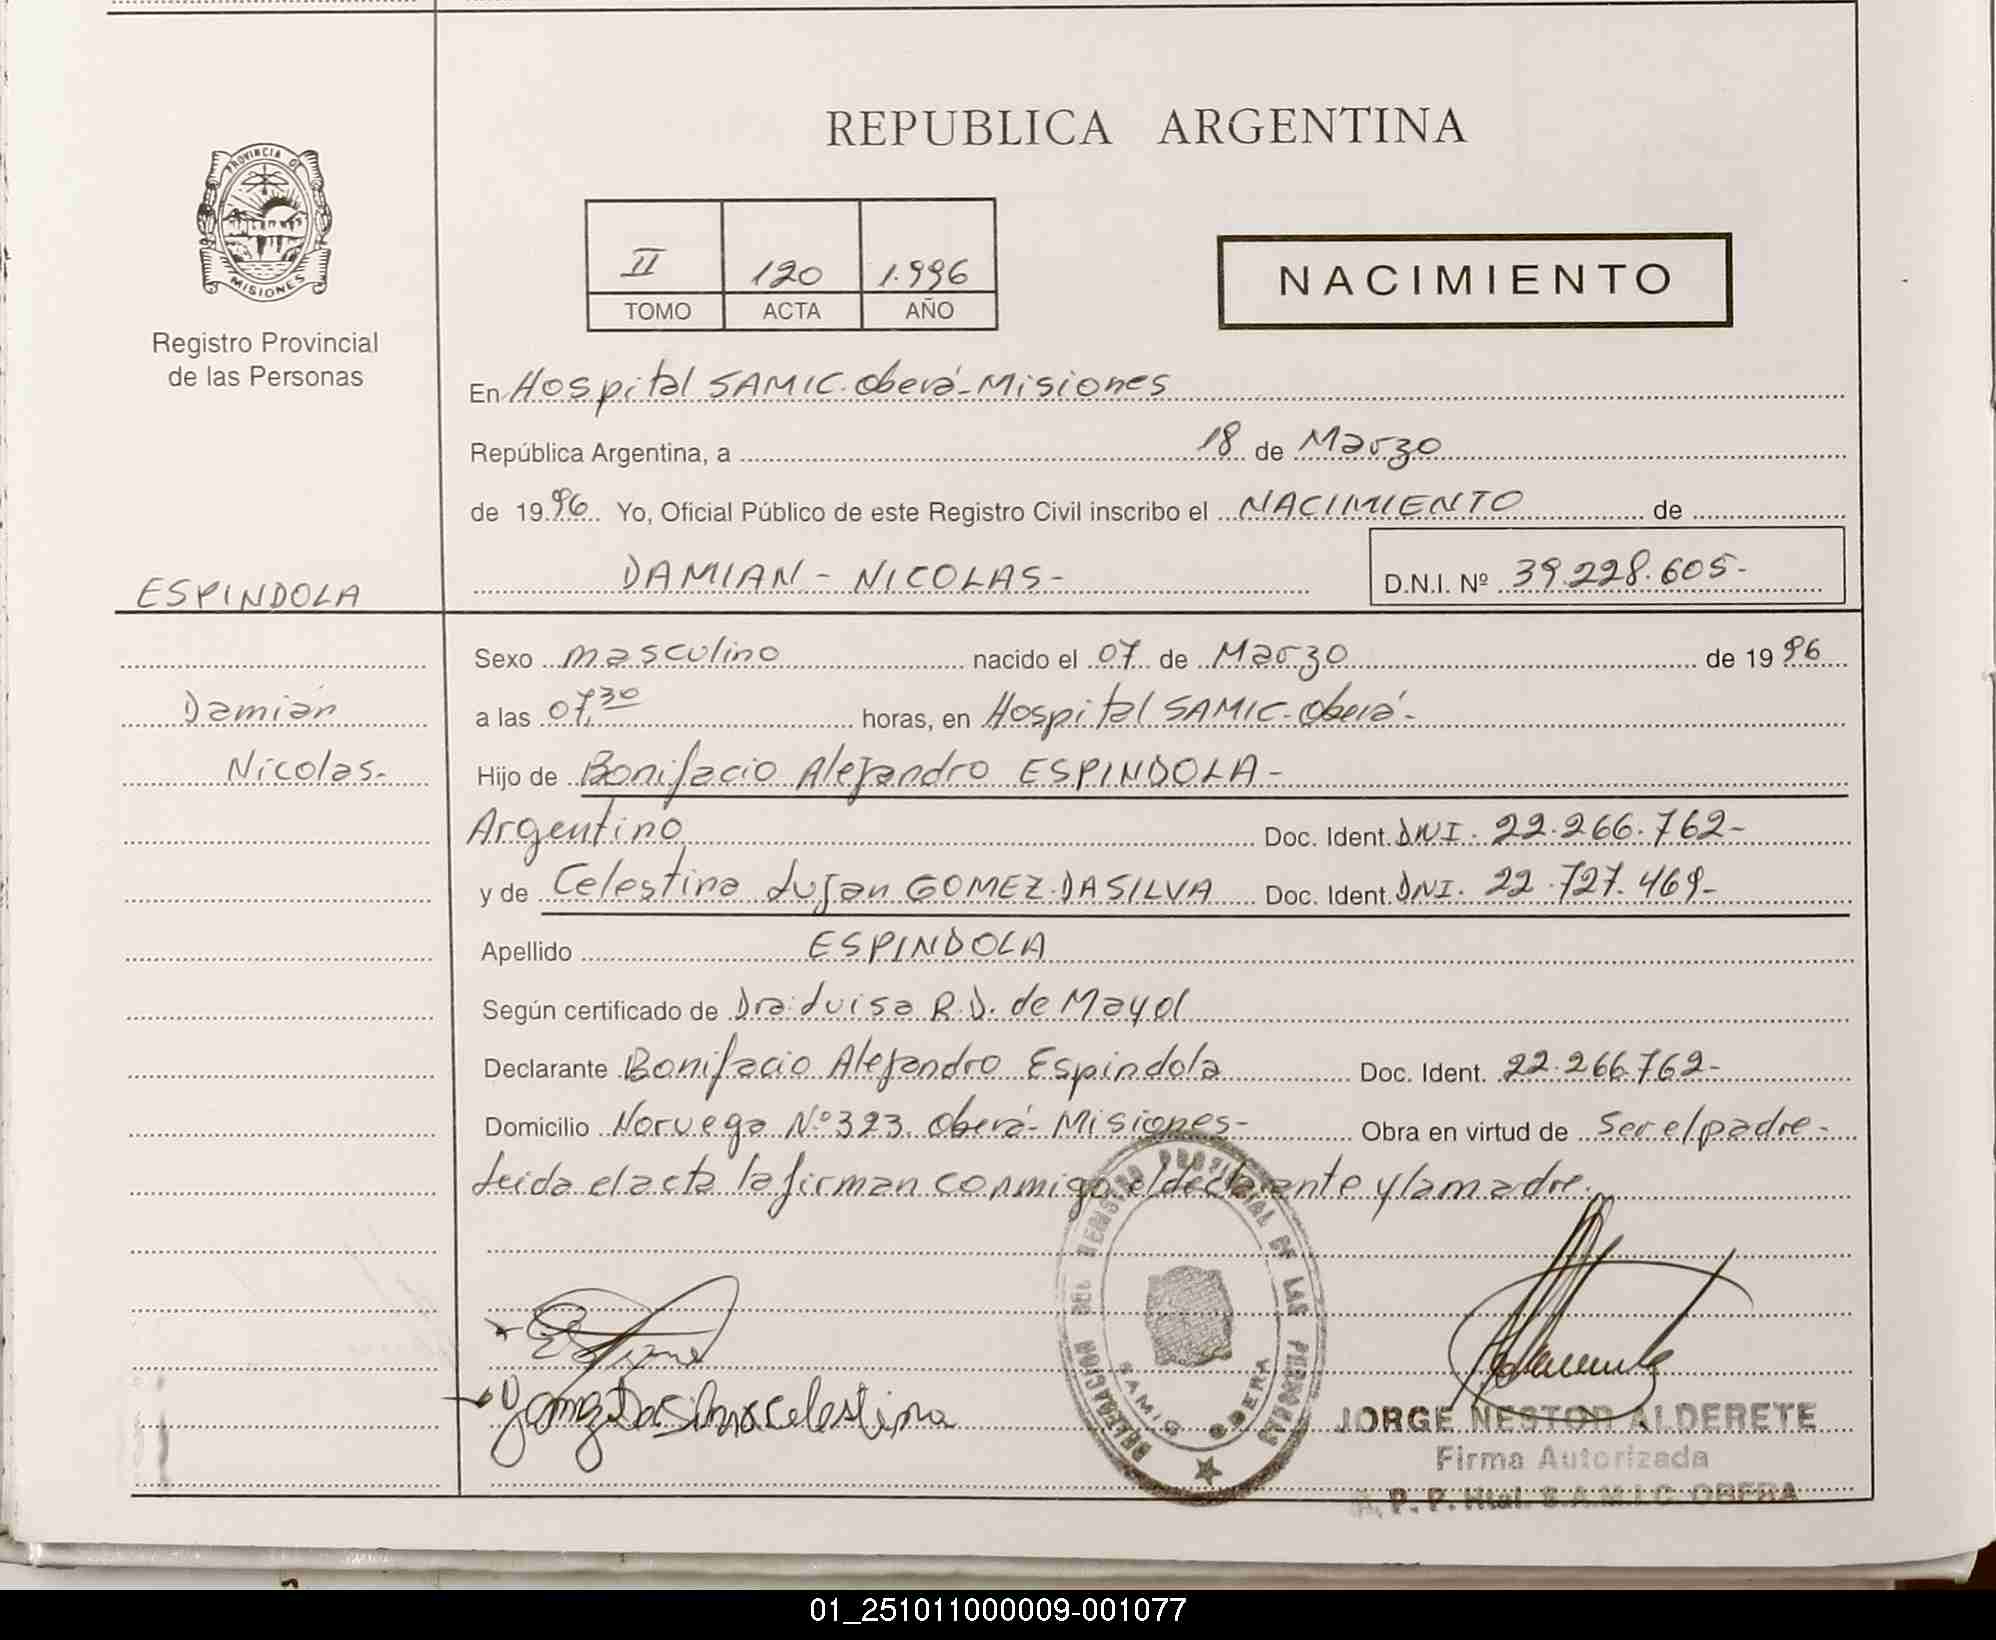 REPUBLICA ARGENTINA
PROVINCIA DE
MISIONES
Registro Provincial
de las Personas
II 120 1.996
TOMO ACTA AÑO
NACIMIENTO
En Hospital SAMIC. Oberá - Misiones
República Argentina, a 18 de Marzo
de 1996. Yo, Oficial Público de este Registro Civil inscribo el NACIMIENTO de
ESPINDOLA
DAMIAN - NICOLAS -
D.N.I. Nº 39.228.605-
Sexo masculino nacido el 07 de Marzo de 1996
Damián
a las 07,30 horas, en Hospital SAMIC - Oberá -
Nicolas-
Hijo de Bonifacio Alejandro ESPINDOLA -
Argentino Doc. Ident. DNI. 22.266.762-
y de Celestina Lujan GOMEZ DASILVA Doc. Ident. DNI. 22.727.469-
Apellido ESPINDOLA
Según certificado de Dra. Luisa R.D. de Mayol
Declarante Bonifacio Alejandro Espindola Doc. Ident. 22.266.762-
Domicilio Noruega Nº 323. Oberá - Misiones - Obra en virtud de ser el padre -
Leida el acta la firman conmigo el declarante y la madre.
DELEGACION DEL REGISTRO PROVINCIAL DE LAS PERSONAS
SAMIC OBERA
Gomez Da Silva Celestina
JORGE NESTOR ALDERETE
Firma Autorizada
R. P. P. Htal. S.A.M.I.C. OBERA
01_251011000009-001077